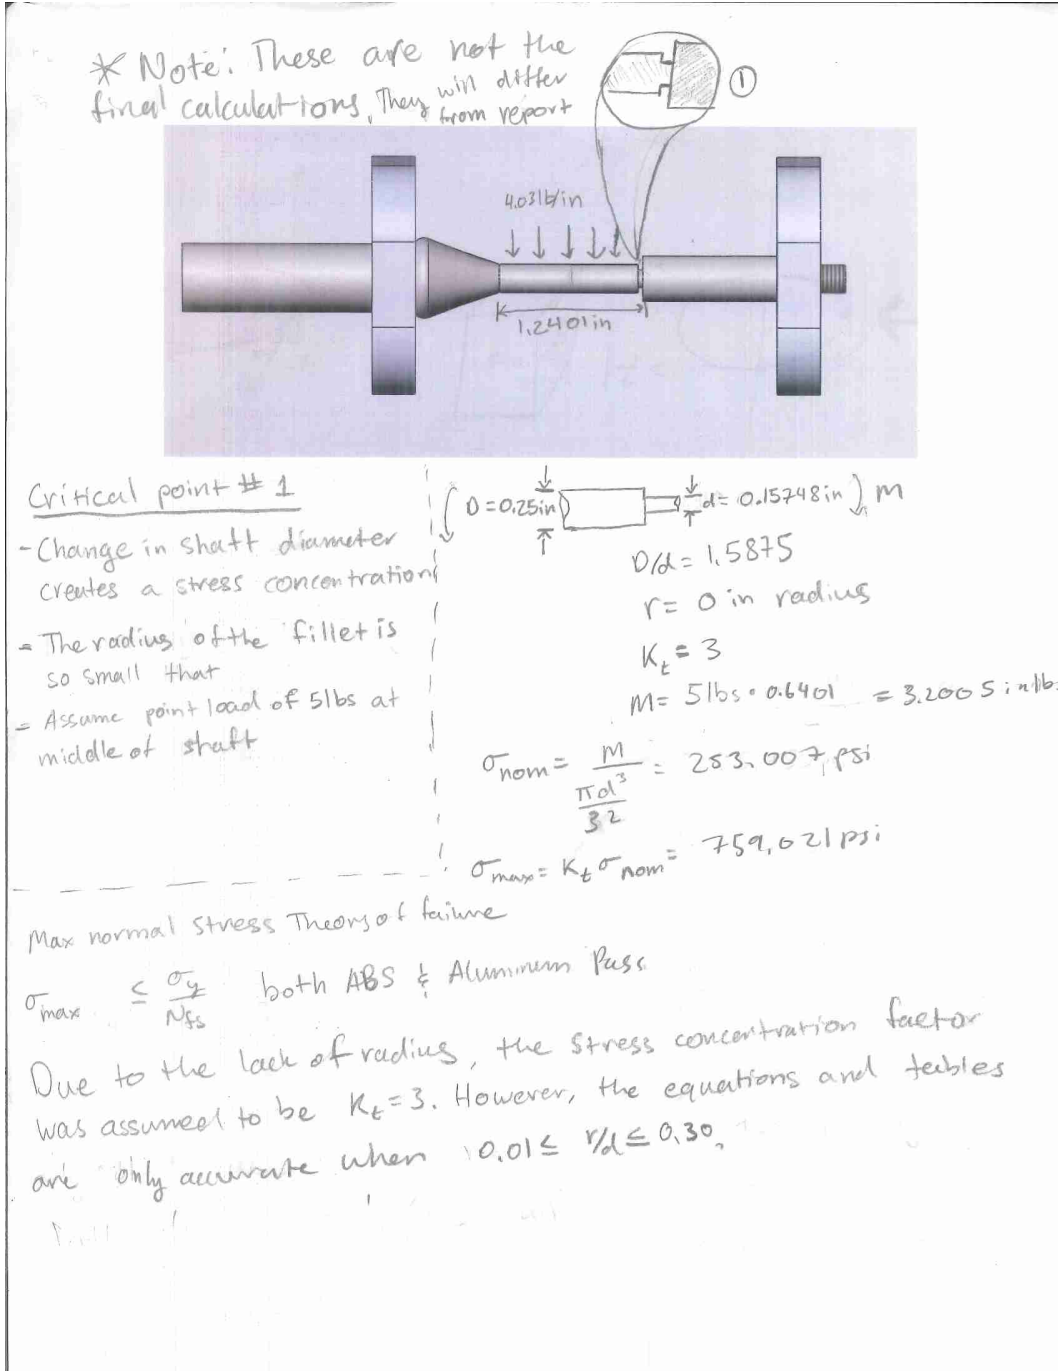 * Note: These are not the
final calculations, They will differ
from report
1
4.03lb/in
1.2401in
Critical point # 1
- Change in shaft diameter
creates a stress concentration
- The radius of the fillet is
so small that
- Assume point load of 5lbs at
middle of shaft
D = 0.25in
d = 0.15748in
M
D/d = 1.5875
r = 0 in radius
Kt = 3
M = 5lbs • 0.6401 = 3.2005 in lbs
σnom = M / (πd³ / 32) = 253.007, psi
σmax = Kt σnom = 759,021 psi
Max normal Stress Theory of failure
σmax ≤ σy / Nfs both ABS & Aluminum Pass
Due to the lack of radius, the stress concentration factor
was assumed to be Kt = 3. However, the equations and tables
are only accurate when 0.01 ≤ r/d ≤ 0.30.